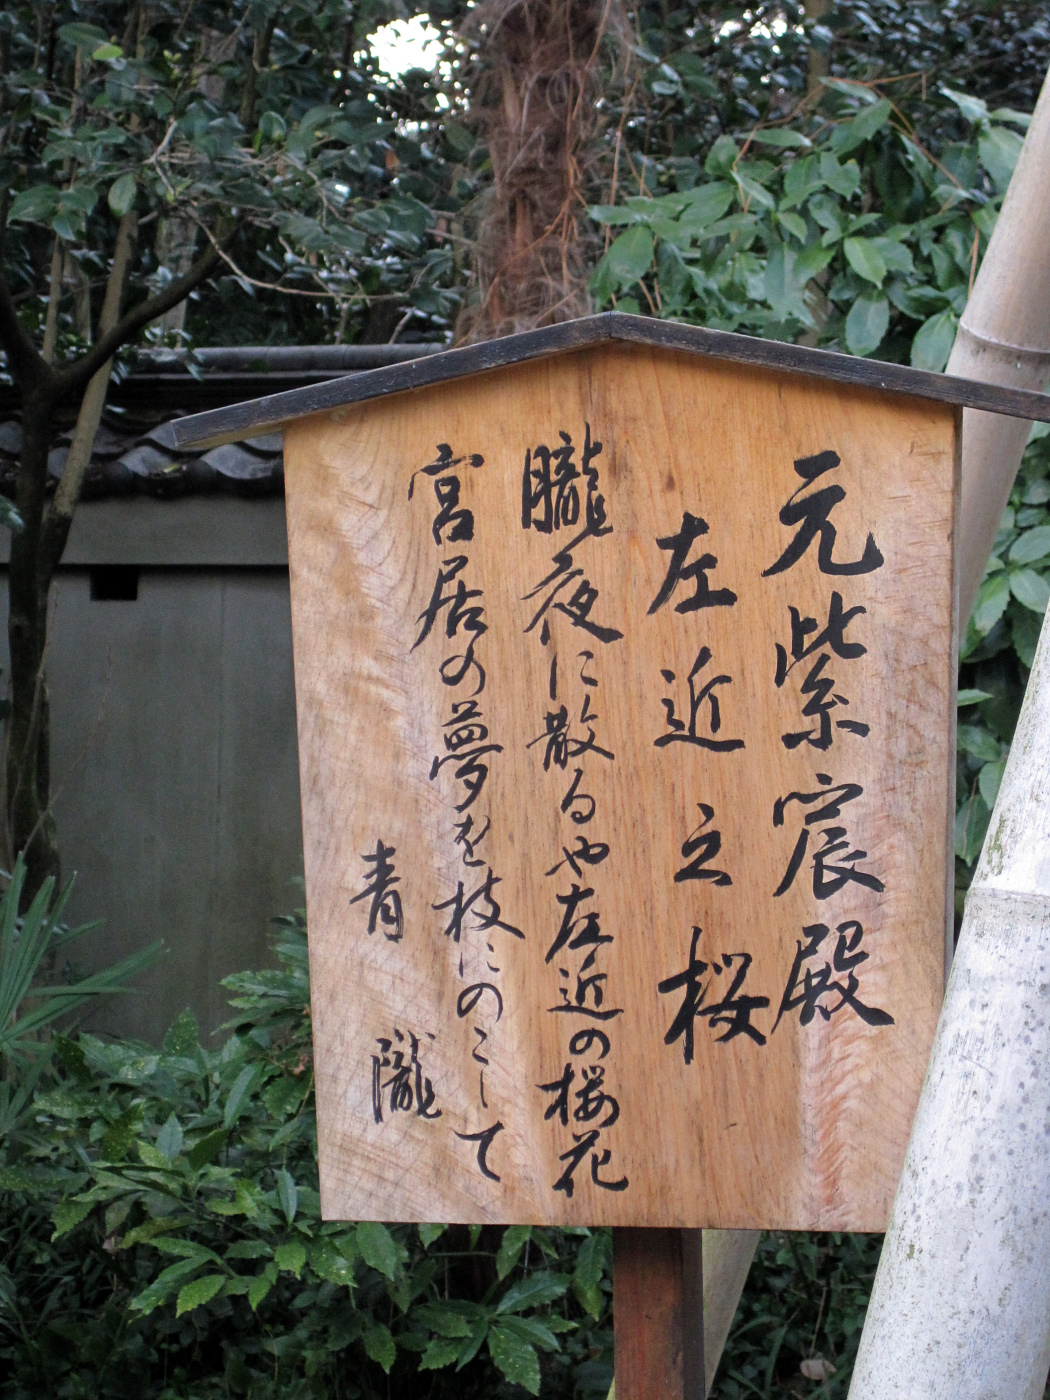 元紫宸殿
左近之桜
朧夜に散るや左近の桜花
宮居の夢を枝にのこして
青瓏